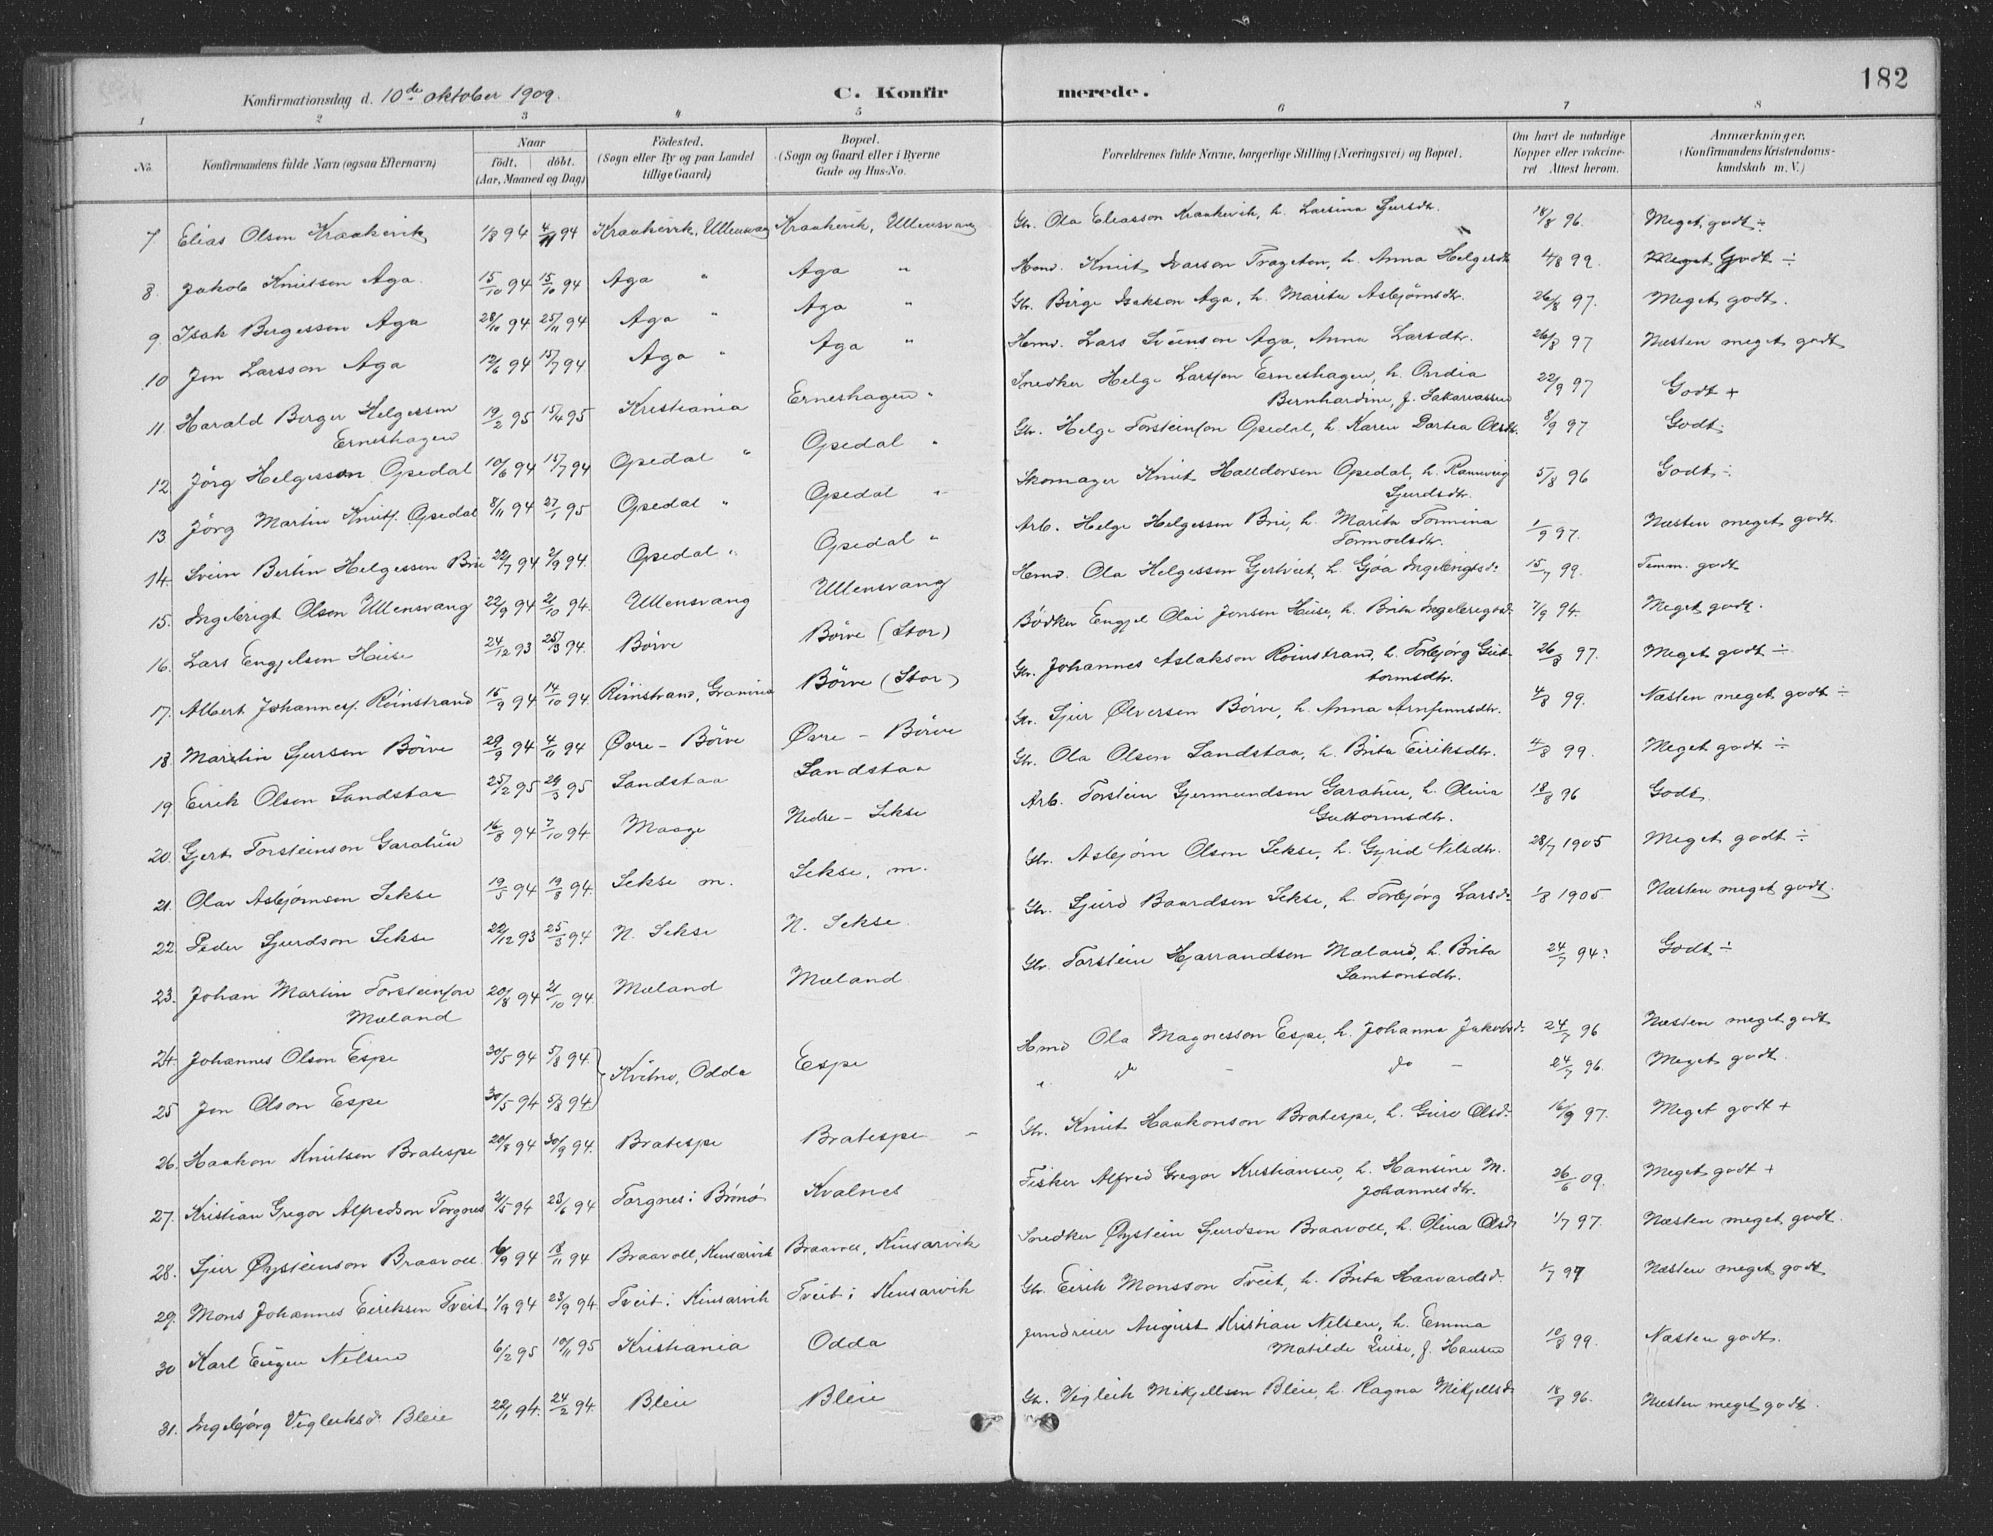 182
Konfirmationsdag d. 10de oktober 1909.
C. Konfirmerede.
1 2 3 4 5 6 7 8
No. Konfirmandens fulde Navn (ogsaa Efternavn) Naar født, døbt. (Aar, Maaned og Dag) Fødested. (Sogn eller By og paa Landet tillige Gaard) Bopæl. (Sogn og Gaard eller i Byerne Gade og Hus-No. Forældrenes fulde Navne, borgerlige Stilling (Næringsvei) og Bopæl. Om havt de naturlige Kopper eller vakcineret Attest herom. Anmærkninger. (Konfirmandens Kristendomskundskab m. V.)
7 Elias Olsen Kraakevik 1/8 94 4/11 94 Kraakevik, Ullensvang Kraakevik, Ullensvang Gbr. Ola Eliasson Kraakevik, h. Larsina Sjursdtr. 18/8 96. Meget godt ÷
8. Jakob Knutsen Aga. 15/10 94 15/10 94 Aga " Aga " Hmd. Knut Ivarson Trageton, h. Anna Helgesdtr 4/8 99. Meget Godt ÷
9. Isak Bergesson Aga 28/10 94 25/11 94 Aga " Aga " Gbr. Birge Isakson Aga, h. Marita Asbjørnsdtr. 26/8 97. Meget godt.
10 Jon Larsson Aga 12/6 94 15/7 94 Aga " Aga " Hmd. Lars Sveinson Aga, Anna Larsdtr. 26/8 97 Næsten meget godt
11. Harald Berger Helgessen Erneshagen 19/2 95 15/4 95 Kristiania Erneshagen " Snedker Helge Larssen Erneshagen, h. Ondia Bernhardine, f. Sakariassen 22/9 97 Godt +
12 Jörg Helgesson Opedal 10/6 94 15/7 94 Opedal " Opedal " Gbr. Helge Torsteinson Opedal, h. Karen Dortea Olsdtr. 8/9 97 Godt.
13 Jörg Martin Knuts. Opedal 8/11 94 27/1 95 Opedal " Opedal " Skomager Knut Halldorsen Opedal, h. Rannveig Sjurdsdtr. 5/8 96 Godt ÷
14. Svein Bertin Helgessen Brie 22/7 94 2/9 94. Opedal " Opedal " Arb. Helge Helgessen Brie, h. Marita Tormina Tormodsdtr. 1/9 97. Næsten meget godt
15. Ingebrigt Olsen Ullensvang 22/9 94 21/10 94. Ullensvang Ullensvang Hmd. Ola Helgessen Gjertveit, h. Gjøa Ingebrigtsd. 15/7 99. Temm. godt
16. Lars Engjelsen Huse 24/12 93 25/3 94. Børve Børve (Stor) Bødker Engjel Olai Jonsen Huse, h. Brita Ingebrigtsd. 7/9 94. Meget godt.
17. Albert Johanness. Røinstrand 15/9 94 14/10 94. Røinstrand, Granvin Børve (Stor) Gbr. Johannes Aslakson Røinstrand, h. Torbjørg Guttormsdtr. 26/8 97. Meget godt ÷
18. Martin Sjursen Börve 29/9 94 4/11 94 Øvre - Börve Øvre - Börve Gbr. Sjur Ølversen Børve, h. Anna Arnfinnsdtr. 4/8 99. Næsten meget godt ÷
19 Eirik Olson Sandstaa 25/2 95 24/3 95 Sandstaa Sandstaa Gbr. Ola Olson Sandstaa, h. Brita Eiriksdtr. 4/8 99. Meget godt ÷
20. Gjert Torsteinson Garahun 16/8 94 7/10 94 Maage Nedre - Sekse Arb. Torstein Gjermundsen Garahun, h. Olina Guttormsdtr. 18/8 96 Godt.
21. Olav Asbjørnsen Sekse 19/5 94 19/8 94. Sekse m. Sekse, m. Gbr. Asbjørn Olson Sekse, h. Gyrid Nilsdtr. 28/7 1905 Meget godt ÷
22. Peder Sjurdson Sekse 22/12 93 25/3 94. N. Sekse N. Sekse. Gbr. Sjurd Baardsen Sekse, h. Torbjørg Larsd. 1/8 1905. Næsten meget godt.
23. Johan Martin Torsteinson Mæland 20/8 94 21/10 94. Mæland Mæland Gbr. Torstein Hjarrandsen Mæland, h. Brita Samsonsdtr. 24/7 94. Godt ÷
24. Johannes Olson Espe 30/5 94 5/8 94 Kvitno, Odda Espe Hmd Ola Magnesson Espe, h. Johanna Jakobsd. 24/7 96 Næsten meget godt
25 Jon Olson Espe 30/5 94 5/8 94 " Do - Do - 24/7 96. Meget godt.
26. Haakon Knutsen Bratespe 20/8 94 30/9 94. Bratespe Bratespe - Gbr. Knut Haakonson Bratespe, h. Guro Olsd. 16/9 97. Meget godt +
27. Kristian Gregor Alfredson Torgnes 21/5 94 23/6 94 Torgnes i Brönö Kvalnes Fisker Alfred Gregor Kristiansen, h. Hansine M. Johannesdtr. 26/6 09. Meget godt +
28. Sjur Øysteinson Braavoll. 16/9 94 18/11 94 Braavoll, Kinsarvik Braavoll, Kinsarvik Snedker Øystein Sjurdson Braavoll, h. Olina Olsd 1/7 97. Næsten meget godt.
29. Mons Johannes Eiriksen Tveit 1/9 94 23/9 94. Tveit i Kinsarvik Tveit i Kinsarvik Gbr. Eirik Monsson Tveit, h. Brita Haavardsd. 1/7 97 Næsten meget godt
30 Karl Eugen Nilsen 6/2 95 10/11 95 Kristiania Odda August Kristian Nilsen, h. Emma Matilde Luise, f. Hansen 10/8 99. Næsten godt.
31. Ingebjørg Vigleiksd. Bleie 22/1 94. 24/2 94. Bleie Bleie Gbr. Vigleik Mikjellsen Bleie, h. Ragna Mikjellsd. 18/8 96. Næsten meget godt.